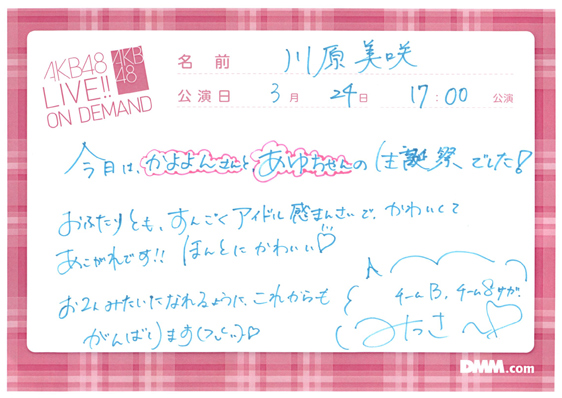 AKB48
LIVE!!
ON DEMAND
AKB
48
名前 川原美咲
公演日 3月 24日 17:00 公演
今日は、かよよんさんと、あゆちゃんの生誕祭でした!
おふたりとも、すんごくアイドル感まんさいで、かわいくて
あこがれです!! ほんとにかわいい♡
お2人みたいになれるように、これからも
がんばります
チームB、チーム8サガ
みっさ
DMM.com